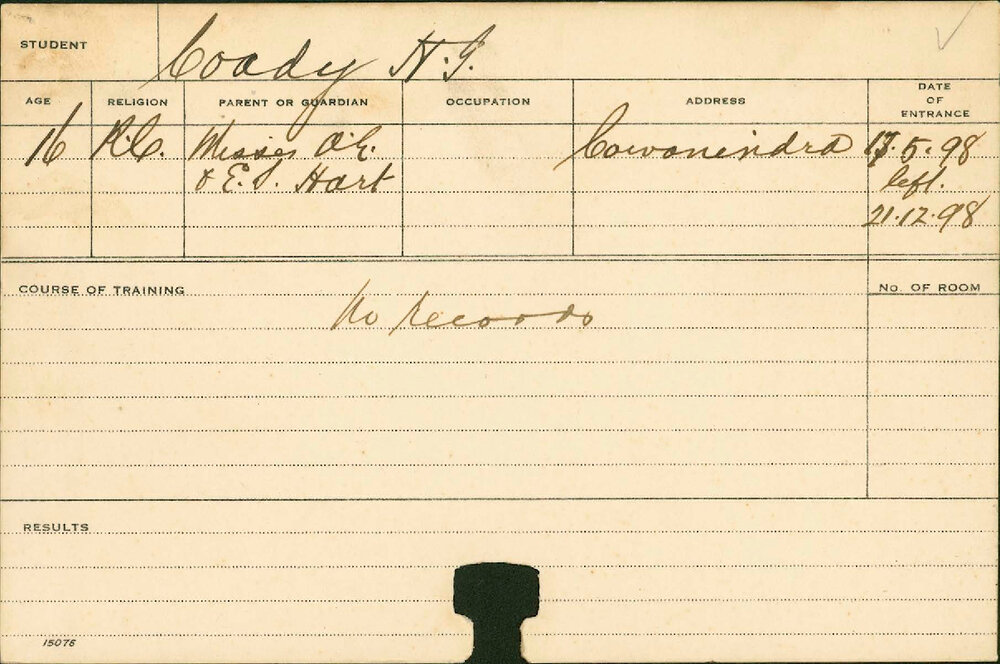 STUDENT Coady N.J.
AGE RELIGION PARENT OR GUARDIAN OCCUPATION ADDRESS DATE OF ENTRANCE
16 R.C. Misses A.E. Cowandindra 17.5.98
& E.J. Hart left.
21.12.98
COURSE OF TRAINING No. OF ROOM
No Records
RESULTS
15075